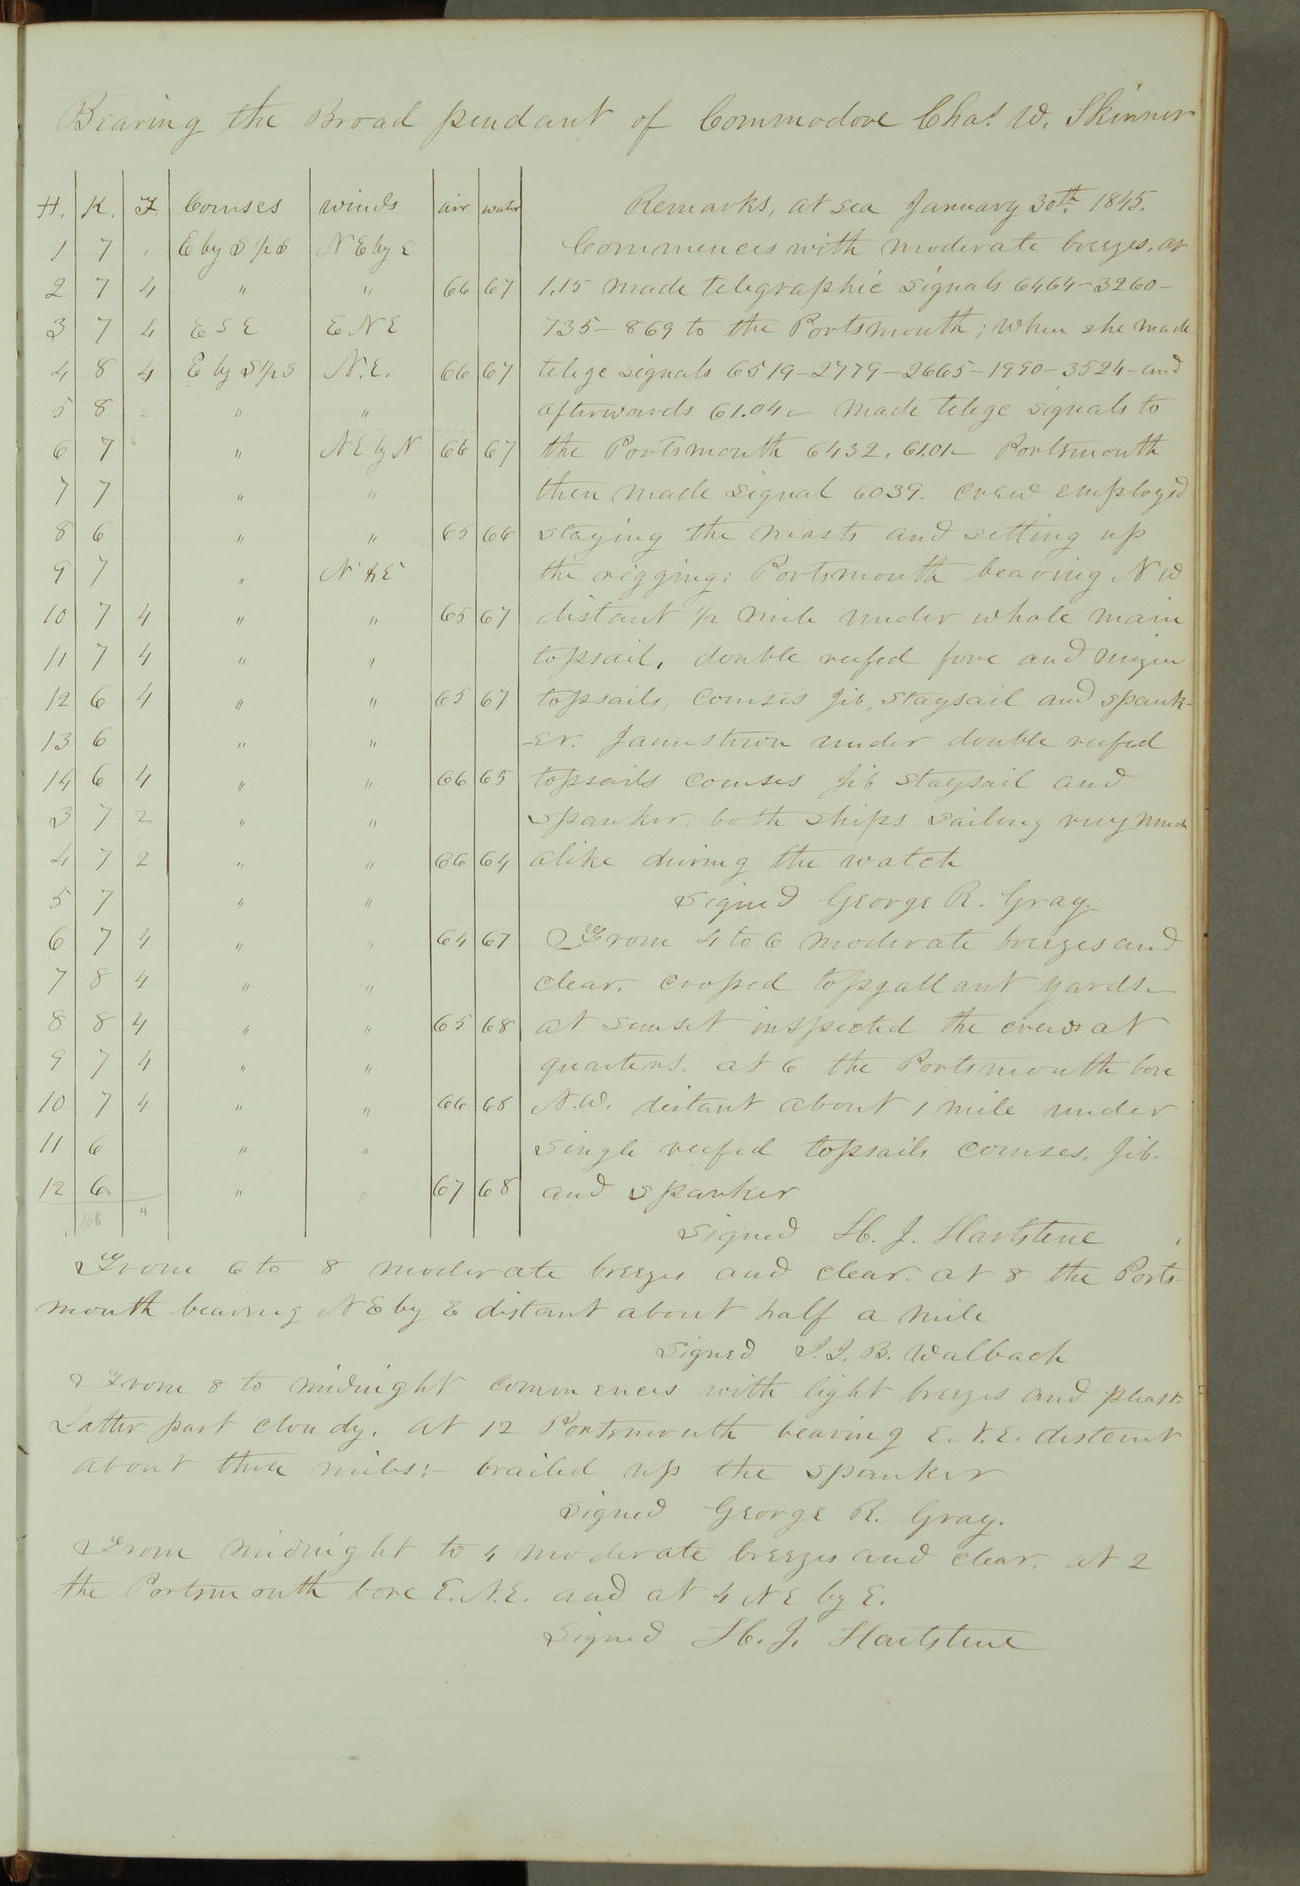 Bearing the Broad pendant of Commodore Chas. W. Skinner
H. K. F. Courses winds air water Remarks, at sea January 30th 1845.
1 7 E by S ½ S N E by E Commences with moderate breezes, at
2 7 4 " " 66 67 1.15 made telegraphic signals 6464-3260-
3 7 4 E S E E N E 735-869 to the Portsmouth; when she made
4 8 4 E by S ½ S N.E. 66 67 telege signals 6519-2779-2665-1990-3524-and
5 8 " " afterwards 61.04- made telege signals to
6 7 " N E by N 66 67 the Portsmouth 6432. 61.01- Portsmouth
7 7 " " then made signal 6039. crew employed
8 6 " " 65 66 staying the masts and setting up
9 7 " the rigging; Portsmouth bearing N W
10 7 4 " " 65 67 distant ½ mile under whole main
11 7 4 " " topsail, double reefed fore and mizen
12 6 4 " " 65 67 topsails, courses jib, staysail and spank-
13 6 " " -er. Jamestown under double reefed
14 6 4 " " 66 65 topsails courses jib staysail and
3 7 2 " " spanker, both ships sailing very much
4 7 2 " " 66 64 alike during the watch
5 7 " " Signed George R. Gray.
6 7 4 " " 64 67 From 4 to 6 moderate breezes and
7 8 4 " " clear. crossed topgallant yards-
8 8 4 " " 65 68 at sunset inspected the crew at
9 7 4 " " quarters. at 6 the Portsmouth bore
10 7 4 " " 66 68 N.W. distant about 1 mile under
11 6 " " single reefed topsails courses, jib
12 6 " " 67 68 and spanker
" Signed H. J. Hartstene
From 6 to 8 moderate breezes and clear. at 8 the Ports-
mouth bearing N E by E distant about half a mile
Signed J. J. B. Walbach
From 8 to midnight commences with light breezes and pleast.
Latter part cloudy. at 12 Portsmouth bearing E.N.E. distant
about three miles:- brailed up the spanker
Signed George R. Gray.
From midnight to 4 moderate breezes and clear. at 2
the Portsmouth bore E.N.E. and at 4 N E by E.
Signed H. J. Hartstene